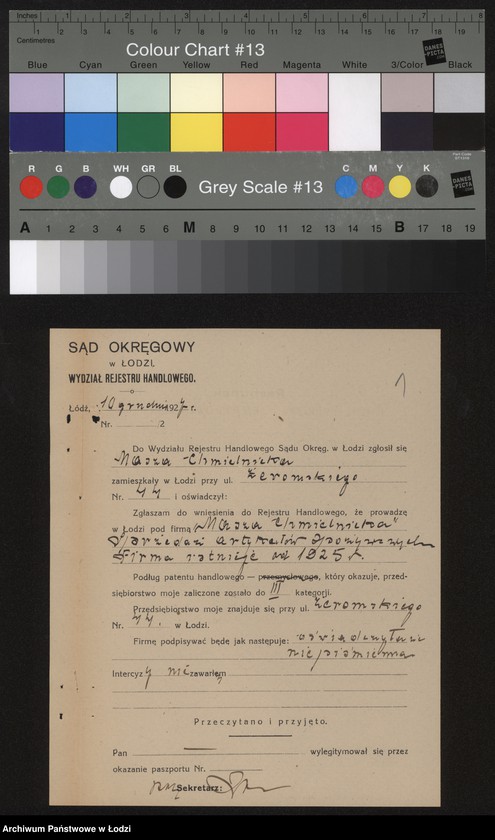 Inches 1 2 3 4 5 6 7 8
Centimetres 1 2 3 4 5 6 7 8 9 10 11 12 13 14 15 16 17 18 19
Colour Chart #13
DANES-PICTA
Blue Cyan Green Yellow Red Magenta White 3/Color Black
R G B WH GR BL Grey Scale #13 C M Y K
DANES-PICTA
A 1 2 3 4 5 6 M 8 9 10 11 12 13 14 15 B 17 18 19
SĄD OKRĘGOWY
W ŁODZI,
WYDZIAŁ REJESTRU HANDLOWEGO.
1
Łódź, 10 grudnia 1927 r.
Nr. /2
Do Wydziału Rejestru Handlowego Sądu Okręg. w Łodzi zgłosił się
Masza Chmielnicka
zamieszkały w Łodzi przy ul. Żeromskiego
Nr. 44 i oświadczył:
Zgłaszam do wniesienia do Rejestru Handlowego, że prowadzę
w Łodzi pod firmą „Masza Chmielnicka"
Sprzedaż artykułów spożywczych
Firma istnieje od 1925 r.
Podług patentu handlowego — przemysłowego, który okazuje, przed-
siębiorstwo moje zaliczone zostało do III kategorji.
Przedsiębiorstwo moje znajduje się przy ul. Żeromskiego
Nr. 44. w Łodzi.
Firmę podpisywać będę jak następuje: oświadczyła że
niepiśmienna
Intercyzy nie zawarłem
Przeczytano i przyjęto.
Pan — wylegitymował się przez
okazanie paszportu Nr.
Sekretarz:
Archiwum Państwowe w Łodzi